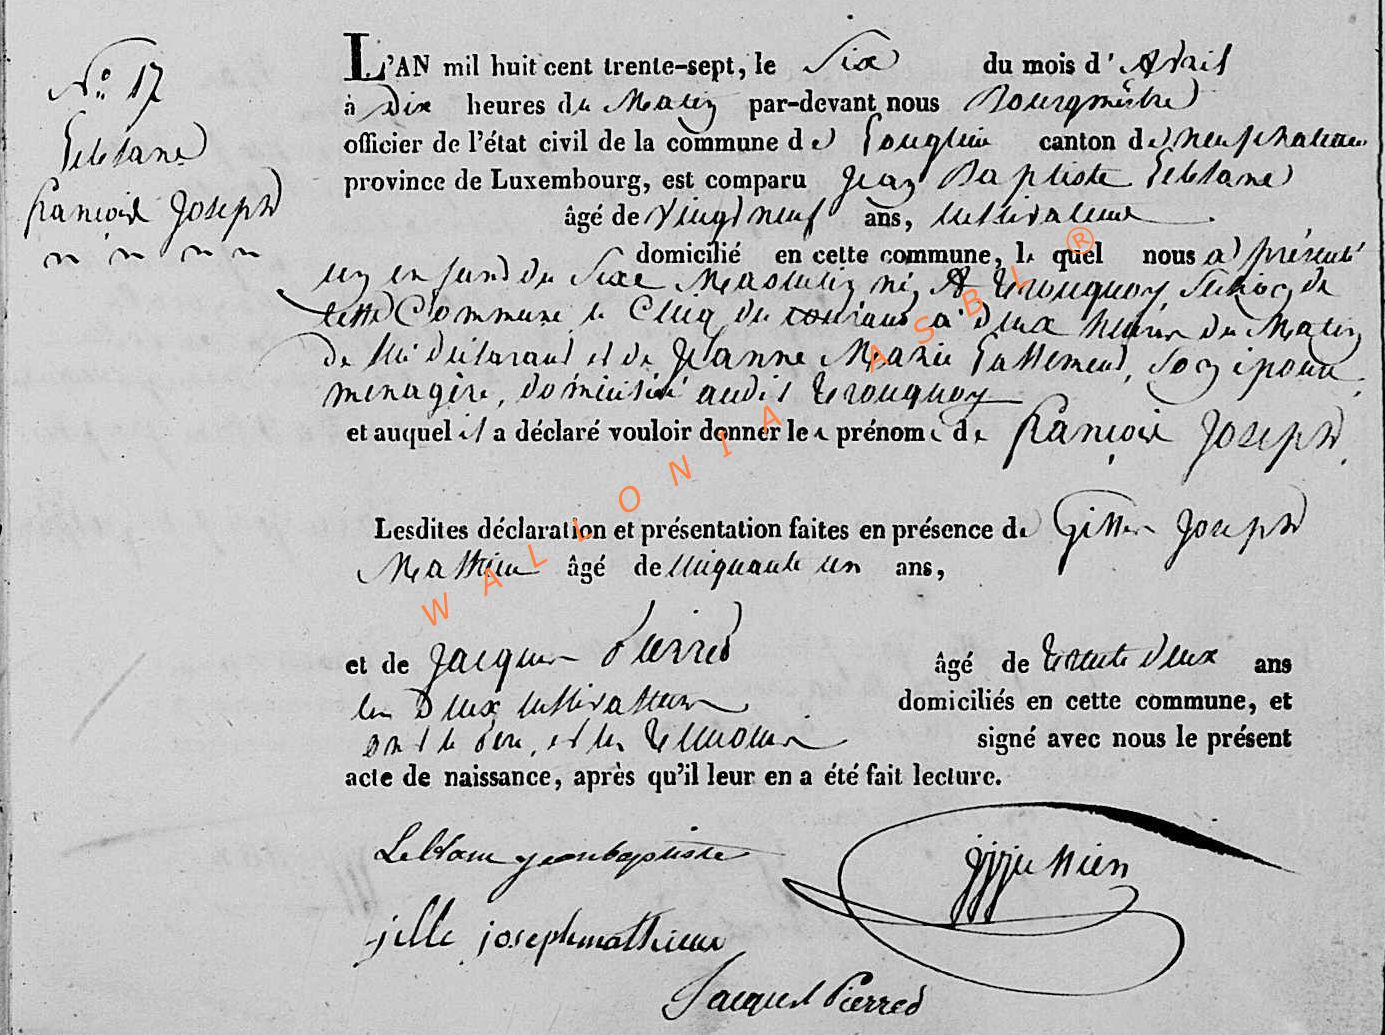 N.° 17
Leblanc
françois Joseph
L'AN mil huit cent trente-sept, le Six du mois d'Avril
à Dix heures du Matin par-devant nous Bourgmêstre
officier de l'état civil de la commune de Longlier canton de neufchateau
province de Luxembourg, est comparu Jean Baptiste Leblanc
âgé de vingt neuf ans, cultivateur
domicilié en cette commune, le quel nous a présenté
un enfant du Sexe Masculin né A tronquoy, Section de
cette Commune le Cinq du courant a Deux heures du Matin
de lui déclarant et de Jeanne Marie Lallemend, Son épouse
menagère, domiciliés audit tronquoy
et auquel il a déclaré vouloir donner les prénoms de françois Joseph.
Lesdites déclaration et présentation faites en présence de Joseph
Mathieu âgé de cinquante un ans,
et de Jacques Pierred âgé de trente deux ans
les Deux cultivateurs domiciliés en cette commune, et
ont le père, et les témoins signé avec nous le présent
acte de naissance, après qu'il leur en a été fait lecture.
Leblanc jeanbaptiste
jille josephmathieux
Jacques Pierred
WALLONIA ASBL ®